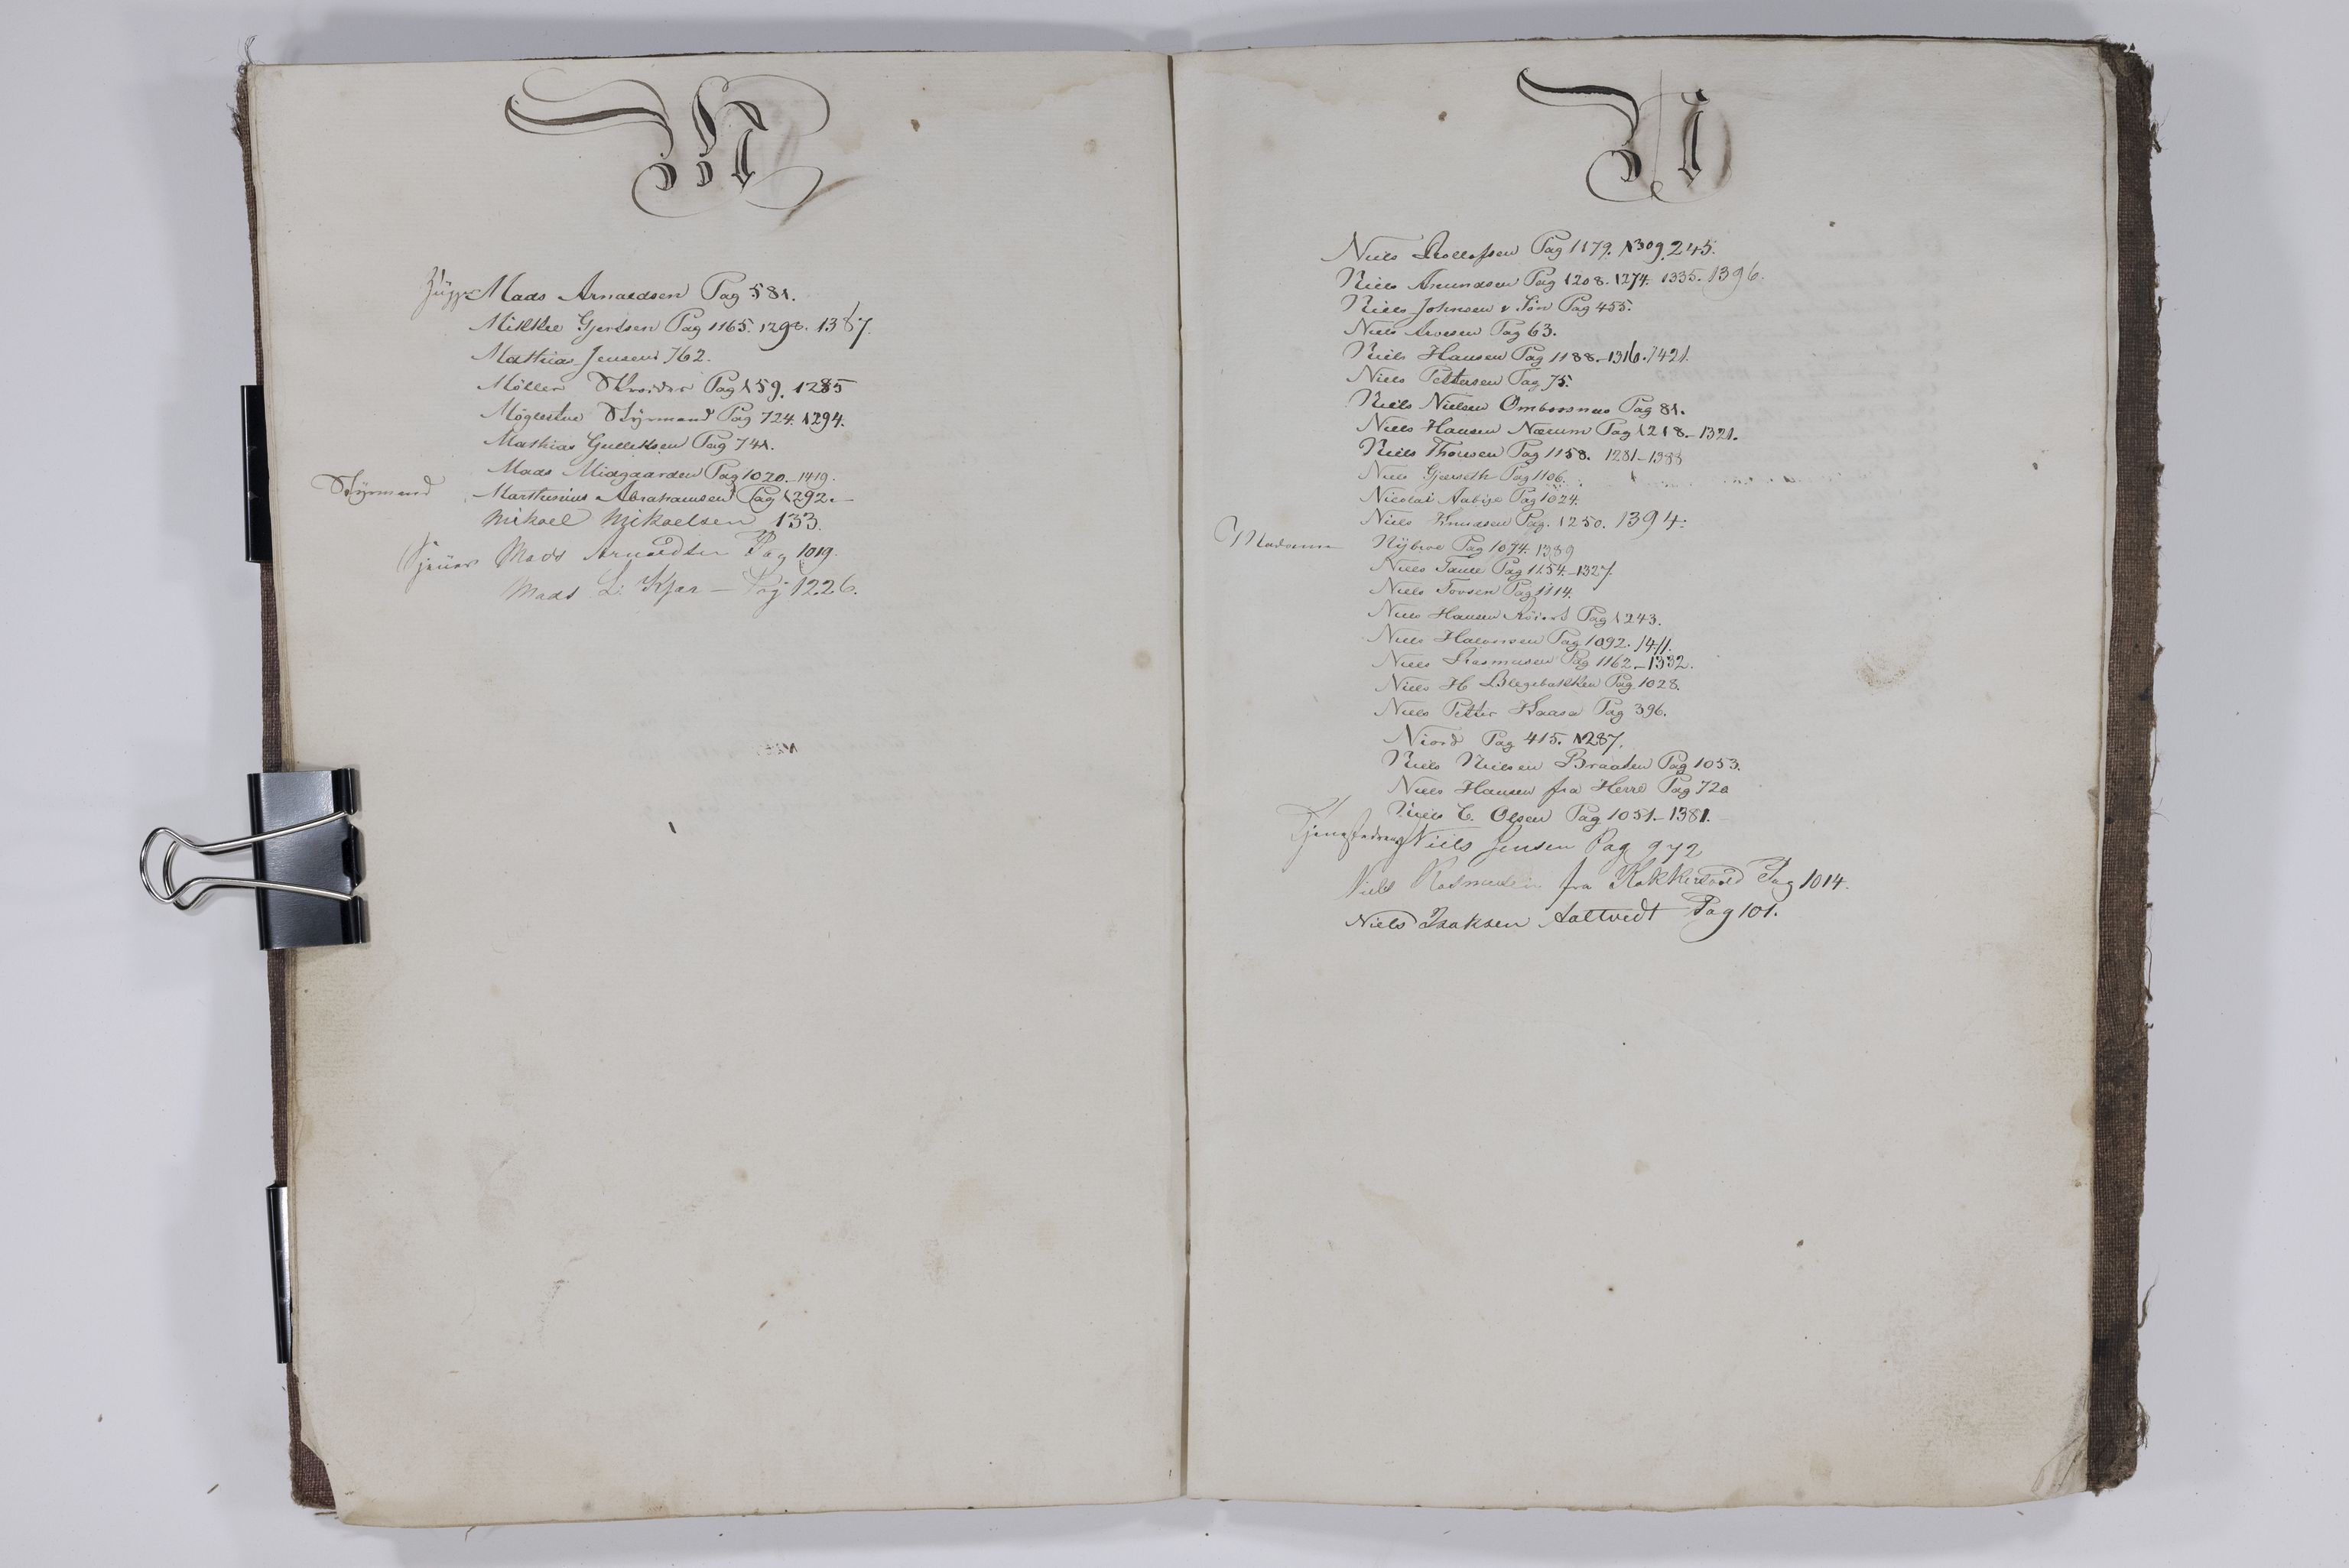 M
Mads Arnaldsen Pag 581.
Mikkel Gjertsen Pag 1165. 1298. 1387.
Mathias Jensen 762.
Möller Pag 159. 1285
Möglestue Styrmand Pag 724. 1294.
Mathias Gulleksen Pag 741.
Mads Midgaarden Pag 1020. 1419.
Styrmand Marthinius Abrahamsen Pag 1292.
Mikael Mikaelsen 133.
Mads Arnoldsen Pag 1019.
Mads L. Kjær — Pag 1226.
N
Niels Pag 1179. 1309. 245.
Niels Amundsen Pag 1208. 1274. 1335. 1396.
Niels Johnsen & Sön Pag 455.
Niels Pag 63.
Niels Hansen Pag 1188.–1316. 1421.
Niels Pettersen Pag 75.
Niels Nielsen Ombordsnes Pag 81.
Niels Hansen Nærum Pag 1218.–1321.
Niels Thorsen Pag 1158. 1281–1388
Niels Gjerseth Pag 1106.
Nicolai Aabye Pag 1024.
Niels Knudsen Pag. 1250. 1394.
Madamme Nybroe Pag 1074. 1389
Niels Pag 1254.–1327.
Niels Tovsen Pag 1114.
Niels Hansen Pag 1243.
Niels Halvorsen Pag 1092. 1411.
Niels Rasmusen Pag 1162.–1332.
Niels H Blegebakken Pag 1028.
Niels Petter Kaasa Pag 396.
Niord Pag 415. 1287.
Niels Nielsen Braaten Pag 1053.
Niels Hansen fra Herre Pag 720
Niels C. Olsen Pag 1051.–1381.
Niels Jensen Pag 972
Niels Rasmusen fra Pag 1014.
Niels Isaksen Aaltvedt Pag 101.